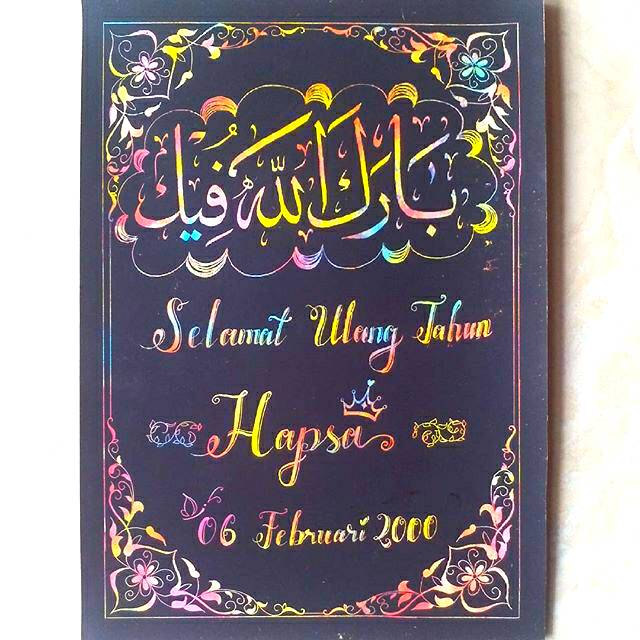 بَارَكَ اللّٰه فِيْك
Selamat Ulang Tahun
Hapsa
06 Februari 2000